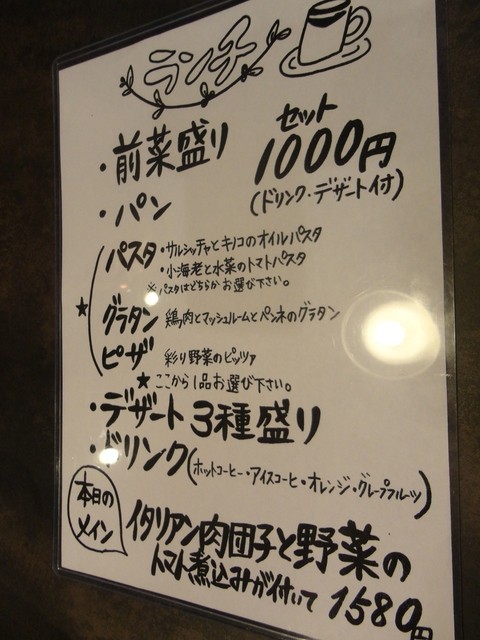 ランチ
・前菜盛り
セット
1000円
(ドリンク・デザート付)
・パン
パスタ・サルシッチャとキノコのオイルパスタ
・小海老と水菜のトマトパスタ
※パスタはどちらかお選び下さい。
★
グラタン 鶏肉とマッシュルームとペンネのグラタン
ピザ 彩り野菜のピッツァ
★ここから1品お選び下さい。
・デザート3種盛り
・ドリンク(ホットコーヒー・アイスコーヒ・オレンジ・グレープフルーツ)
本日の
メイン
イタリアン肉団子と野菜の
トマト煮込みが付いて 1580円